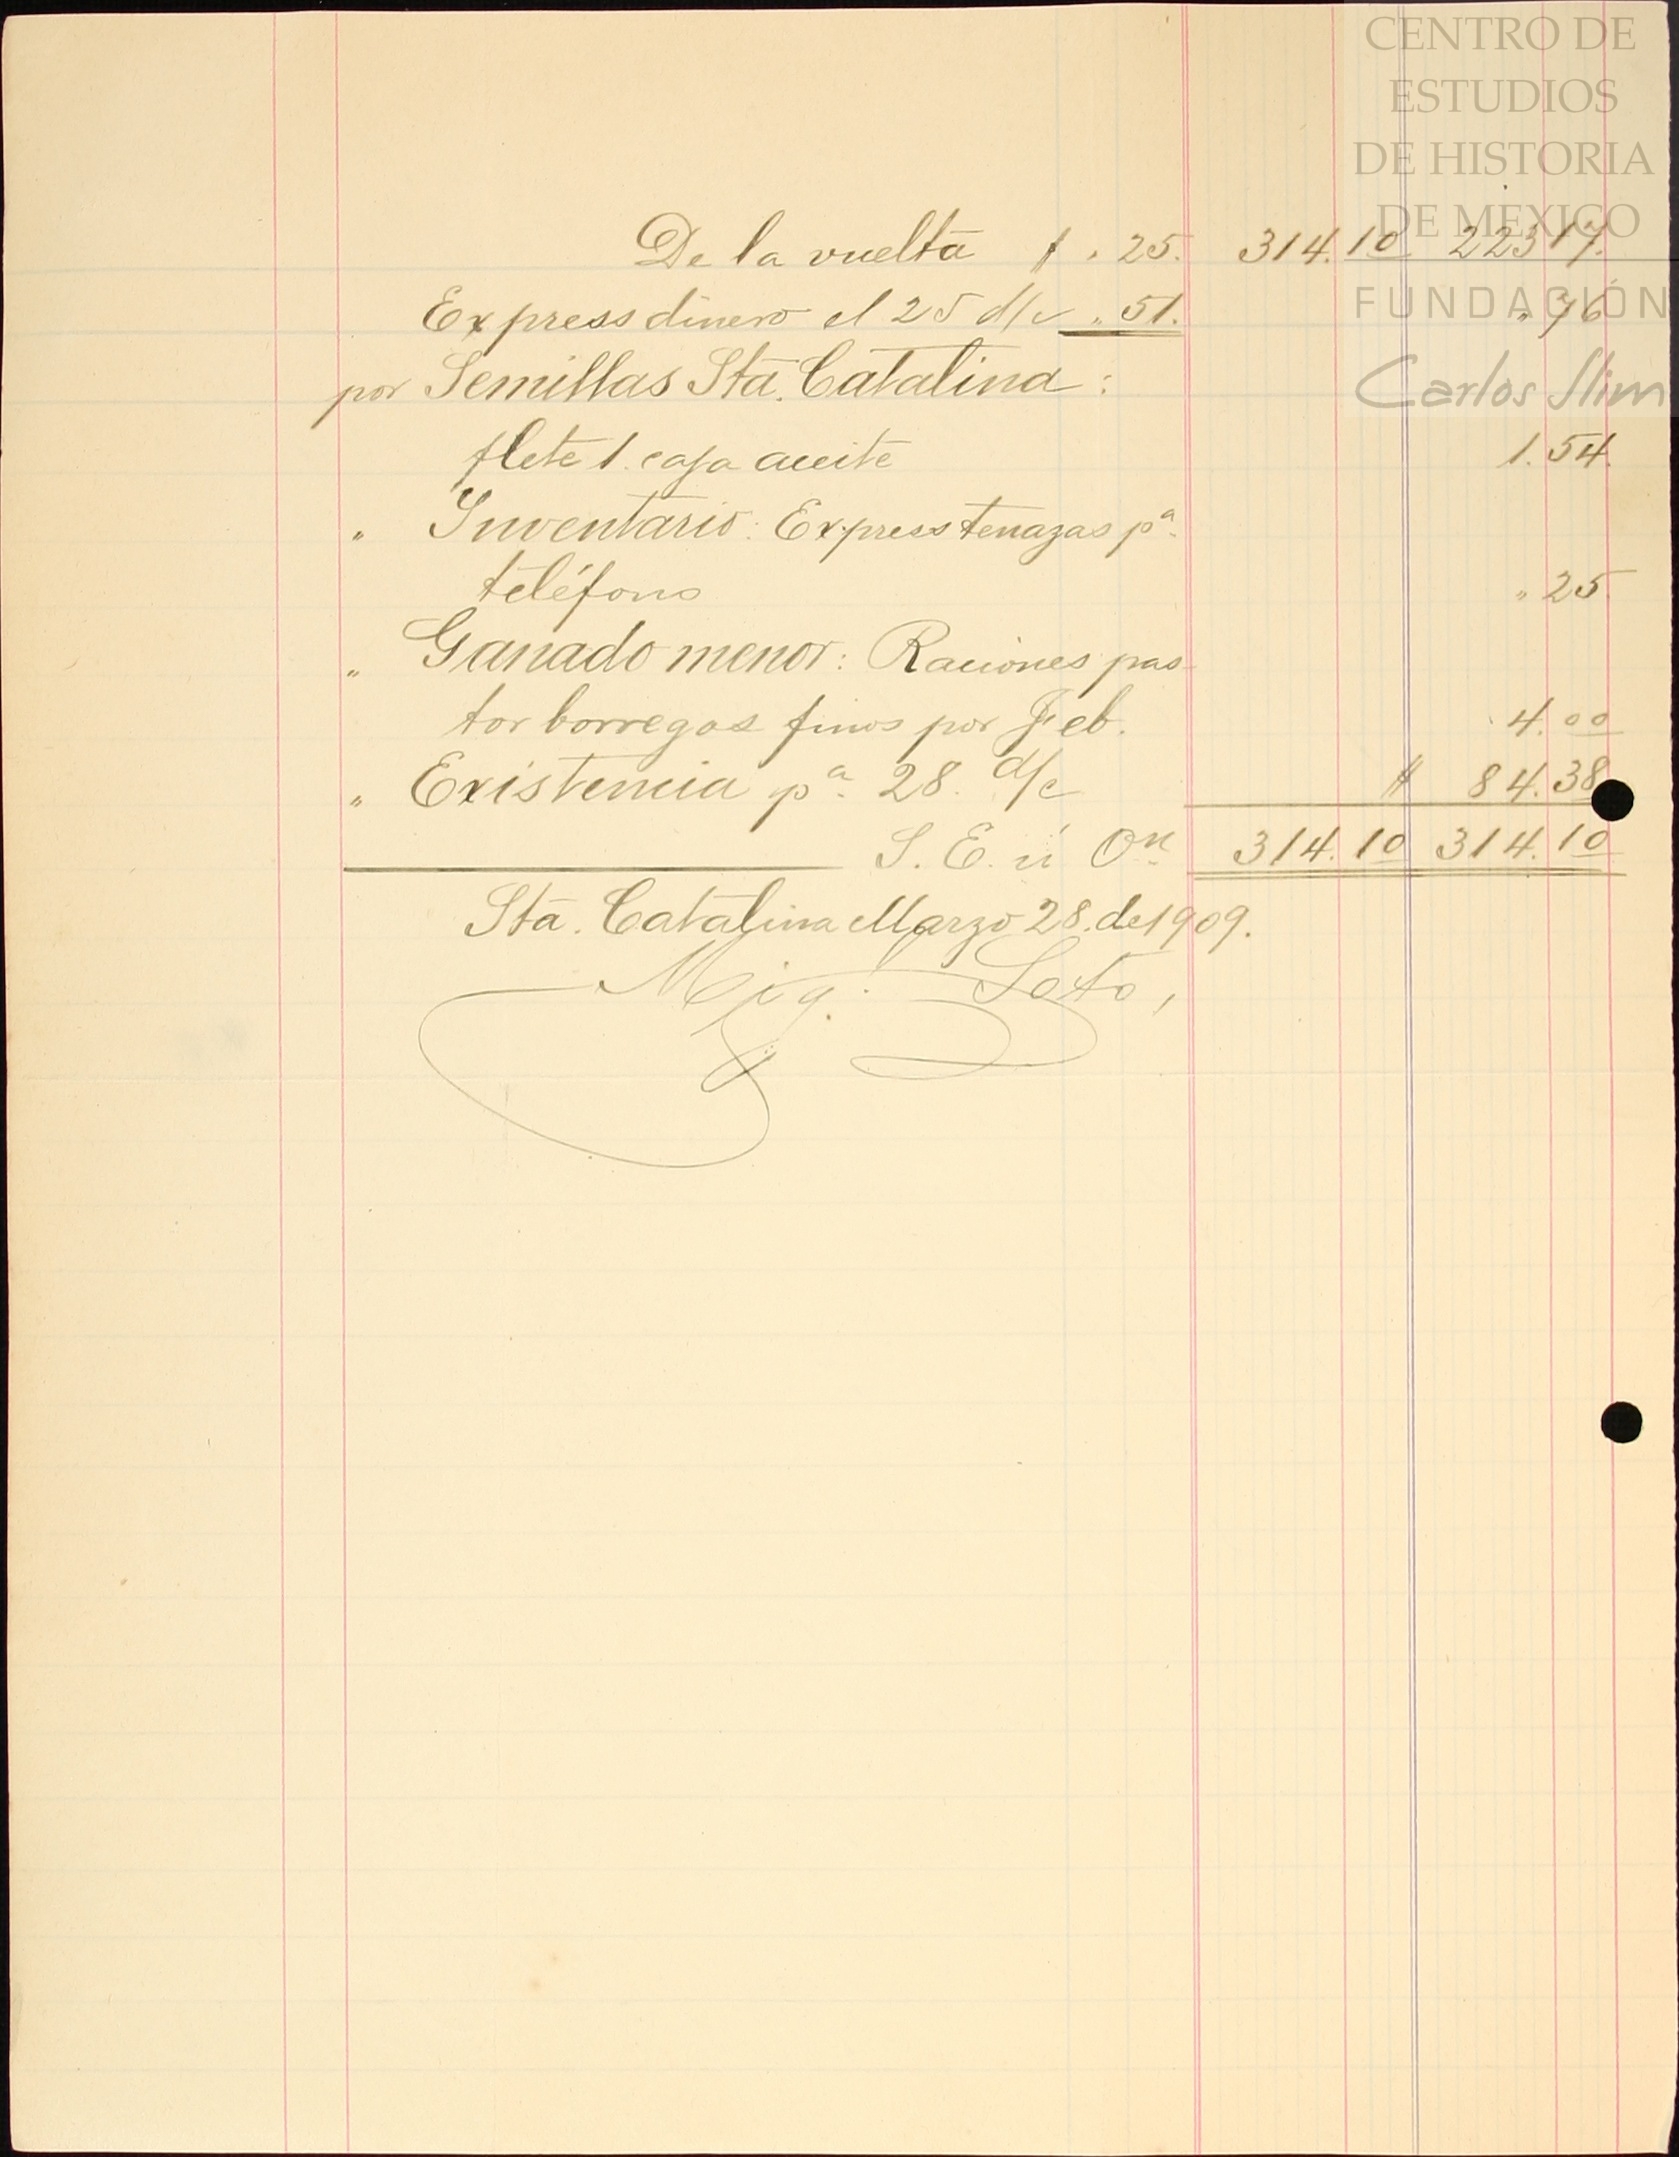 CENTRO DE
ESTUDIOS
DE HISTORIA
DE MÉXICO
FUNDACIÓN
Carlos Slim
De la vuelta $ " 25. 314.10 223 17.
Express dinero el 25 d/c " 51. " 76
por Semillas Sta. Catalina :
flete 1. caja aceite 1.54.
" Inventario: Express tenazas pª
teléfono " 25
" Ganado menor: Raciones pas-
tor borregos finos por Feb. 4.00
" Existencia pª 28. d/c $ 84.38
S. E. ú On 314.10 314.10
Sta. Catalina Marzo 28. de 1909.
Mig. Soto,